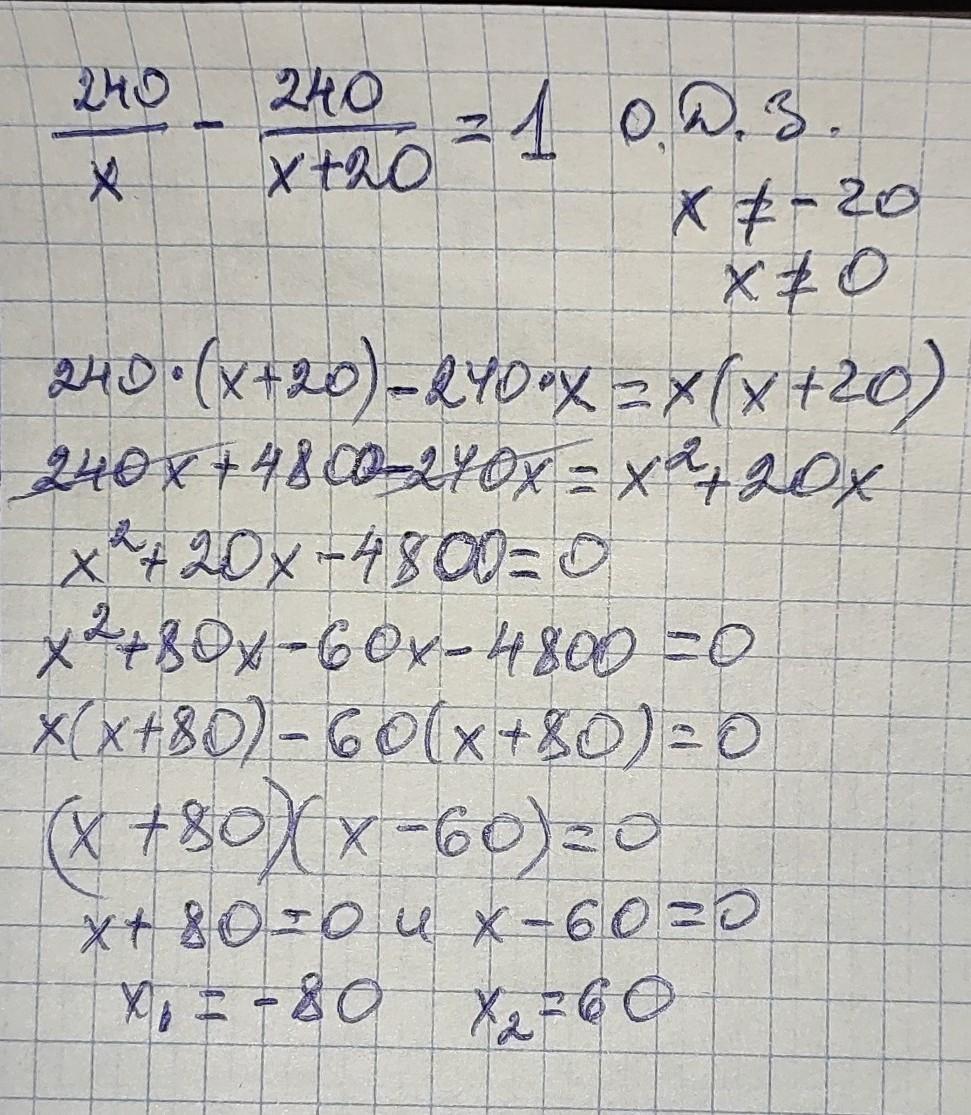 240/x - 240/(x+20) = 1 О.Д.З.
x ≠ -20
x ≠ 0
240·(x+20)-240·x = x(x+20)
240x+4800-240x = x²+20x
x²+20x-4800=0
x²+80x-60x-4800=0
x(x+80)-60(x+80)=0
(x+80)(x-60)=0
x+80=0 и x-60=0
x₁ = -80 x₂=60